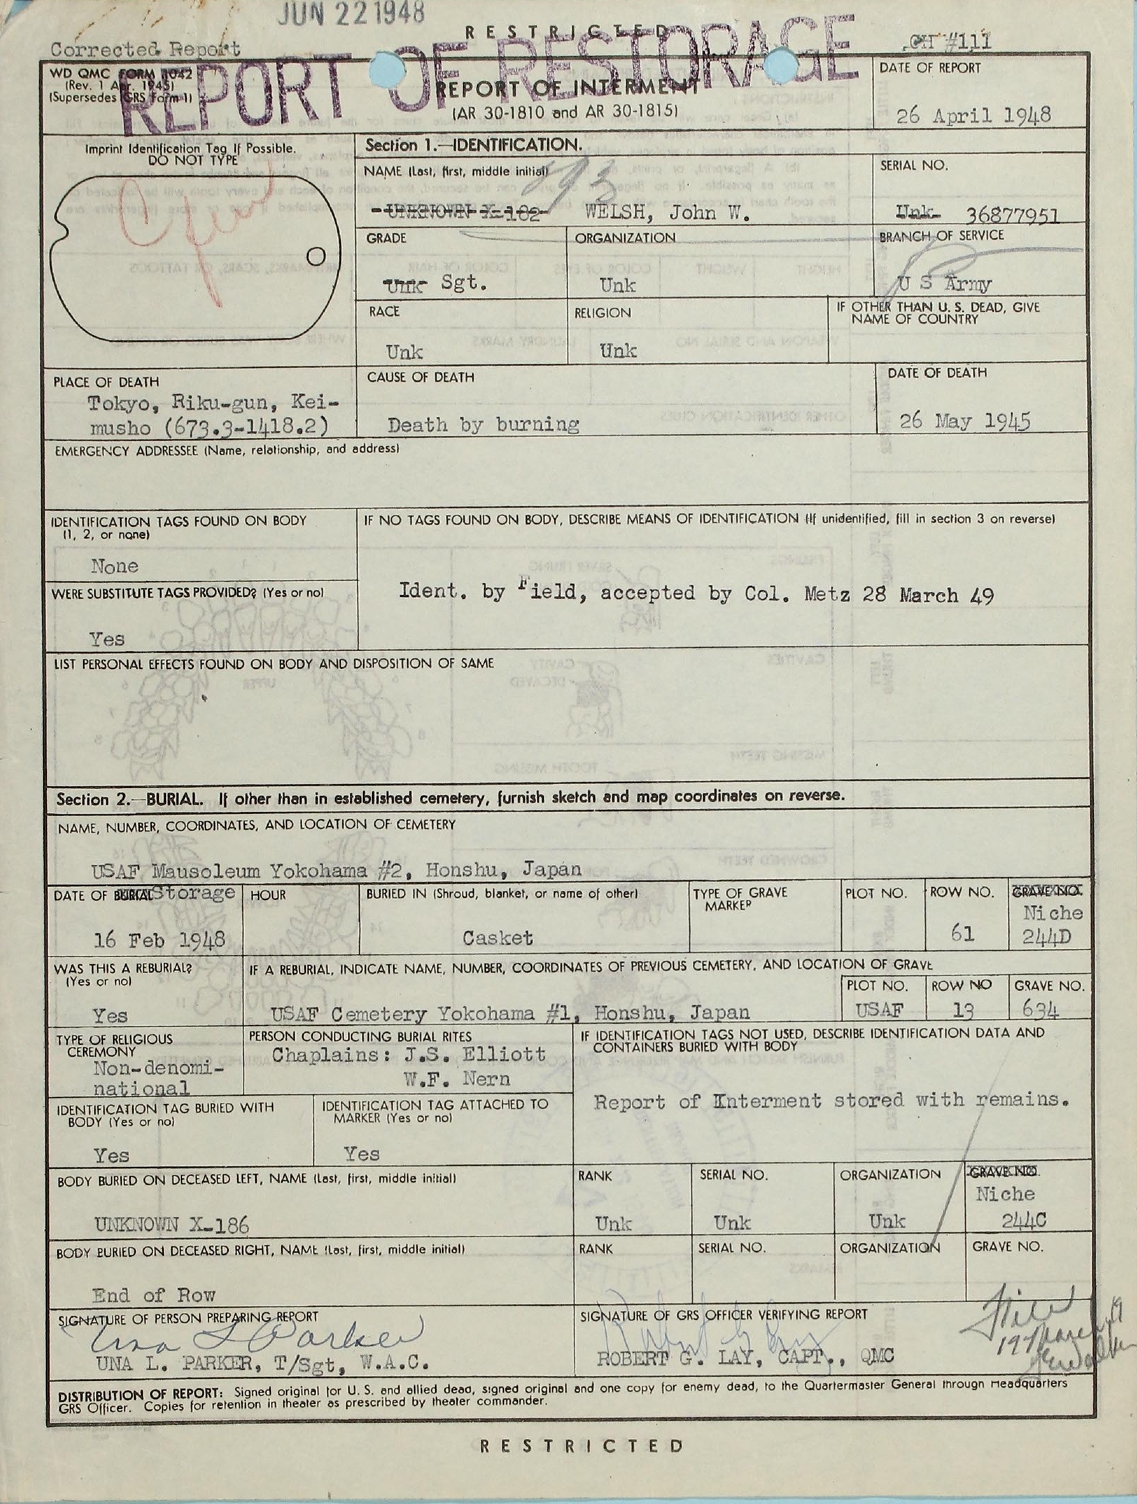 JUN 22 1948
RESTRICTED
Corrected Report
CH #111
REPORT OF RESTORAGE
WD QMC FORM 1042
(Rev. 1 Apr. 1945)
(Supersedes GRS Form 1)
REPORT OF INTERMENT
(AR 30-1810 and AR 30-1815)
DATE OF REPORT
26 April 1948
Imprint Identification Tag If Possible.
DO NOT TYPE
Section 1.—IDENTIFICATION.
NAME (Last, first, middle initial)
193
UNKNOWN X-182 WELSH, John W.
SERIAL NO.
Unk 36877951
GRADE
Unk Sgt.
ORGANIZATION
Unk
BRANCH OF SERVICE
U S Army
RACE
Unk
RELIGION
Unk
IF OTHER THAN U. S. DEAD, GIVE
NAME OF COUNTRY
PLACE OF DEATH
Tokyo, Riku-gun, Kei-
musho (673.3-1418.2)
CAUSE OF DEATH
Death by burning
DATE OF DEATH
26 May 1945
EMERGENCY ADDRESSEE (Name, relationship, and address)
IDENTIFICATION TAGS FOUND ON BODY
(1, 2, or none)
None
IF NO TAGS FOUND ON BODY, DESCRIBE MEANS OF IDENTIFICATION (If unidentified, fill in section 3 on reverse)
Ident. by Field, accepted by Col. Metz 28 March 49
WERE SUBSTITUTE TAGS PROVIDED? (Yes or no)
Yes
LIST PERSONAL EFFECTS FOUND ON BODY AND DISPOSITION OF SAME
Section 2.—BURIAL. If other than in established cemetery, furnish sketch and map coordinates on reverse.
NAME, NUMBER, COORDINATES, AND LOCATION OF CEMETERY
USAF Mausoleum Yokohama #2, Honshu, Japan
DATE OF BURIAL Storage
16 Feb 1948
HOUR
BURIED IN (Shroud, blanket, or name of other)
Casket
TYPE OF GRAVE
MARKER
PLOT NO.
ROW NO.
61
GRAVE NO.
Niche
244D
WAS THIS A REBURIAL?
(Yes or no)
Yes
IF A REBURIAL, INDICATE NAME, NUMBER, COORDINATES OF PREVIOUS CEMETERY, AND LOCATION OF GRAVE
USAF Cemetery Yokohama #1, Honshu, Japan
PLOT NO.
USAF
ROW NO
13
GRAVE NO.
634
TYPE OF RELIGIOUS
CEREMONY
Non-denomi-
national
PERSON CONDUCTING BURIAL RITES
Chaplains: J.S. Elliott
W.F. Nern
IF IDENTIFICATION TAGS NOT USED, DESCRIBE IDENTIFICATION DATA AND
CONTAINERS BURIED WITH BODY
Report of Interment stored with remains.
IDENTIFICATION TAG BURIED WITH
BODY (Yes or no)
Yes
IDENTIFICATION TAG ATTACHED TO
MARKER (Yes or no)
Yes
BODY BURIED ON DECEASED LEFT, NAME (Last, first, middle initial)
UNKNOWN X-186
RANK
Unk
SERIAL NO.
Unk
ORGANIZATION
Unk
GRAVE NO.
Niche
244C
BODY BURIED ON DECEASED RIGHT, NAME (Last, first, middle initial)
End of Row
RANK
SERIAL NO.
ORGANIZATION
GRAVE NO.
SIGNATURE OF PERSON PREPARING REPORT
Una L Parker
UNA L. PARKER, T/Sgt, W.A.C.
SIGNATURE OF GRS OFFICER VERIFYING REPORT
Robert G Lay
ROBERT G. LAY, CAPT., QMC
DISTRIBUTION OF REPORT: Signed original for U. S. and allied dead, signed original and one copy for enemy dead, to the Quartermaster General through Headquarters
GRS Officer. Copies for retention in theater as prescribed by theater commander.
RESTRICTED